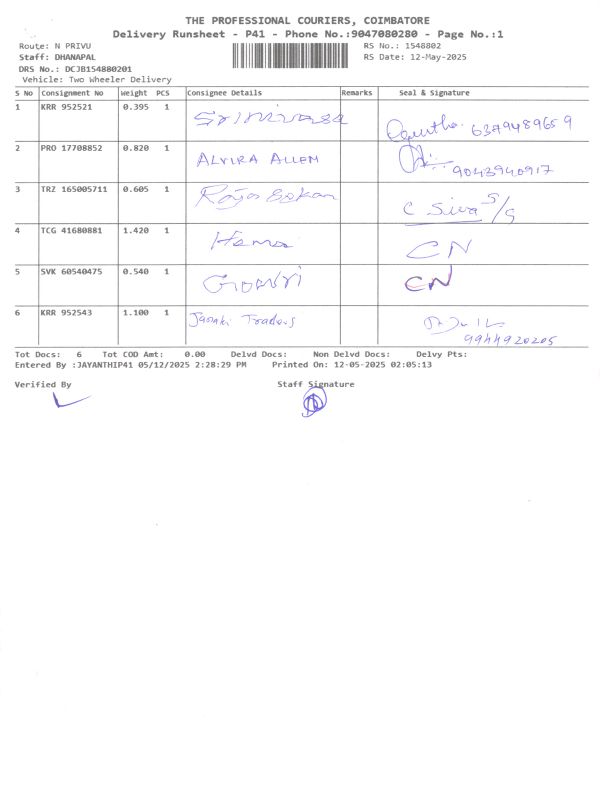 THE PROFESSIONAL COURIERS, COIMBATORE
Delivery Runsheet - P41 - Phone No.:9047080280 - Page No.:1
Route: N PRIVU RS No.: 1548802
Staff: DHANAPAL RS Date: 12-May-2025
DRS No.: DCJB154880201
Vehicle: Two Wheeler Delivery
S No Consignment No Weight PCS Consignee Details Remarks Seal & Signature
1 KRR 952521 0.395 1 Srinivasa 6379489659
2 PRO 17708852 0.820 1 ALVIRA ALLEM 9043940917
3 TRZ 165005711 0.605 1 C Siva S/S
4 TCG 41680881 1.420 1 Hema CN
5 SVK 60540475 0.540 1 Gowri CN
6 KRR 952543 1.100 1 Janaki Traders 9944920205
Tot Docs: 6 Tot COD Amt: 0.00 Delvd Docs: Non Delvd Docs: Delvy Pts:
Entered By :JAYANTHIP41 05/12/2025 2:28:29 PM Printed On: 12-05-2025 02:05:13
Verified By Staff Signature